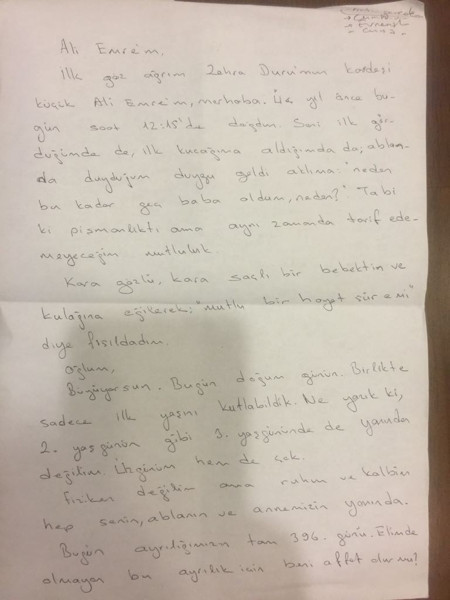 Ali Emre'm,
İlk göz ağrım Zehra Duru'mun kardeşi
küçük Ali Emre'm, merhaba. Üç yıl önce bu-
gün saat 12:15'de doğdun. Seni ilk gör-
düğümde de, ilk kucağıma aldığımda da, ablan-
da duyduğum duygu geldi aklıma: "neden
bu kadar geç baba oldum, neden?" Tabi
ki pişmanlıktı ama aynı zamanda tarif ede-
meyeceğim mutluluk.
Kara gözlü, kara saçlı bir bebektin ve
kulağına eğilerek; "mutlu bir hayat sür emi"
diye fısıldadım.
Oğlum,
Büyüyorsun. Bugün doğum günün. Birlikte
sadece ilk yaşını kutlabildik. Ne yazık ki,
2. yaşgünün gibi 3. yaşgününde de yanında
değilim. Üzgünüm hem de çok.
Fiziken değilim ama ruhum ve kalbim
hep senin, ablanın ve annemizin yanında.
Bugün ayrılığımızın tam 396. günü. Elimde
olmayan bu ayrılık için beni affet olur mu?